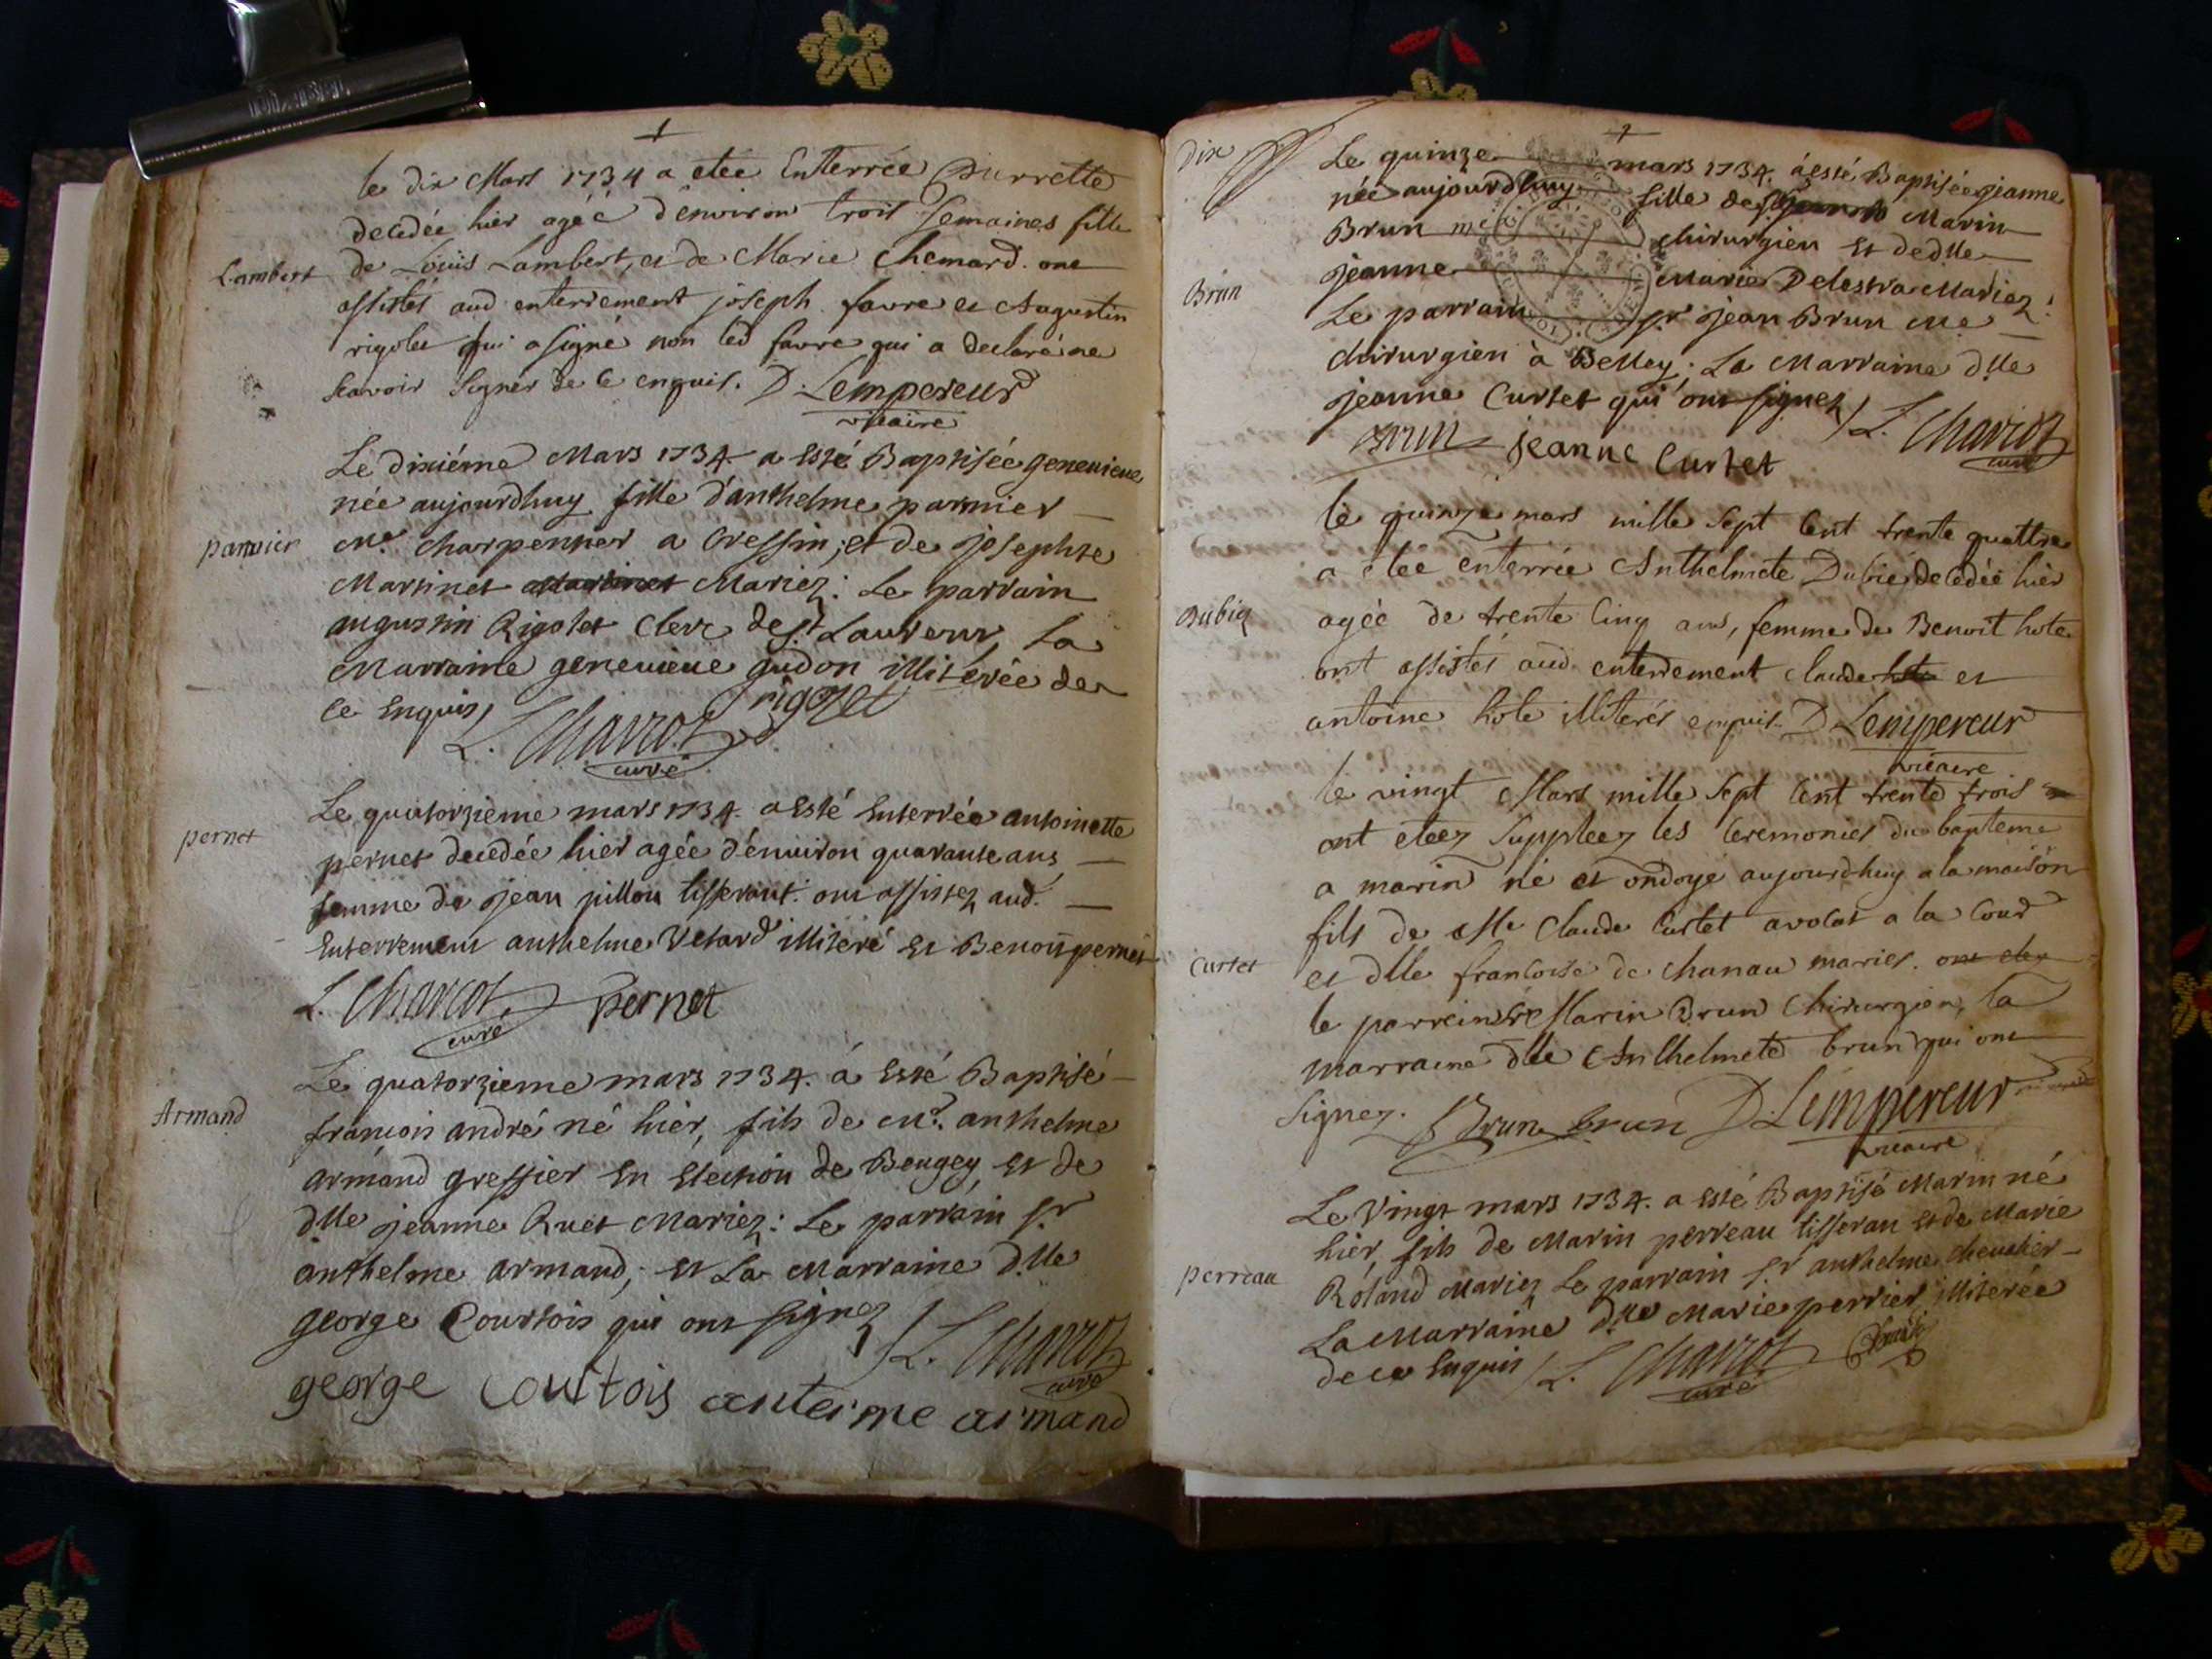 le dix Mars 1734 a etée Enterrée pierrette
decedée hier agéé d'environ trois Semaines fille
Lambert
de Loüis Lambert, et de Marie chemard. ont
assistés aud enterrement joseph favre et Augustin
rigolet qui a signé non led favre qui a declaré ne
scavoir signer de ce enquis. D. Lempereur
vicaire
Le dixiéme Mars 1734. a esté Baptisée genevieve
née aujourdhuy fille d'anthelme parnier
parnier
Me. charpentier a Cressin; et de josephte
Martinet Mariez: Le parrain
augustin Rigolet clerc de st Laurent, La
Marraine genevieve gudon illiterée de
ce Enquis, rigolet
L. Charcot
curé
Le quatorzieme mars 1734. a esté Enterrée antoinette
pernet
pernet decedée hier agée d'environ quarante ans
femme de jean pillon tisserant. ont assistez aud.
Enterrement anthelme Vetard illiteré et Benoit pernet
L. Charcot pernet
curé
Le quatorzieme mars 1734. á esté Baptisé
Armand
francois andré né hier, fils de Me. anthelme
armand greffier En Election de Beugey, et de
dlle jeanne Ruet Mariez: Le parrain sr
anthelme armand; et La Marraine dlle
george Courtois qui ont signez L. Charcot
curé
george Courtois antelme armand
Dix
Le quinze mars 1734. á esté Baptisée jeanne
née aujourdhuy fille de sr Marin
Brun me chirurgien et de dlle
Brun
jeanne Marie Delestra Mariez:
Le parrain sr jean Brun Me
chirurgien à Belley; La Marraine dlle
jeanne Curtet qui ont signez L. Charcot
curé
Brun jeanne Curtet
le quinze mars mille sept cent trente quattre
a etée enterrée Anthelmete Dubié decedée hier
Dubiez
agée de trente cinq ans, femme de Benoit hote
ont assistés aud. enterrement claude hote et
antoine hote illiterés enquis. D Lempereur
vicaire
le vingt Mars mille sept cent trente trois
ont eteez suppleez les ceremonies du bapteme
a marin né et ondoyé aujourd-huy a la maison
fils de Me Claude Curtet avocat a la Cour
Curtet
et dlle francoise de chanau mariés. ont etez
le parrein sr Marin Brun chirurgien, la
marraine dlle Anthelmete brun qui ont
signez. Brun brun D. Lempereur
vicaire
Le Vingt mars 1734. a esté Baptisé Marin né
hier, fils de Marin perreau tisseran et de Marie
perreau
Roland Mariez Le parrain sr anthelme chevalier
La Marraine dlle Marie perrier illiterée
de ce Enquis L. Charcot
curé